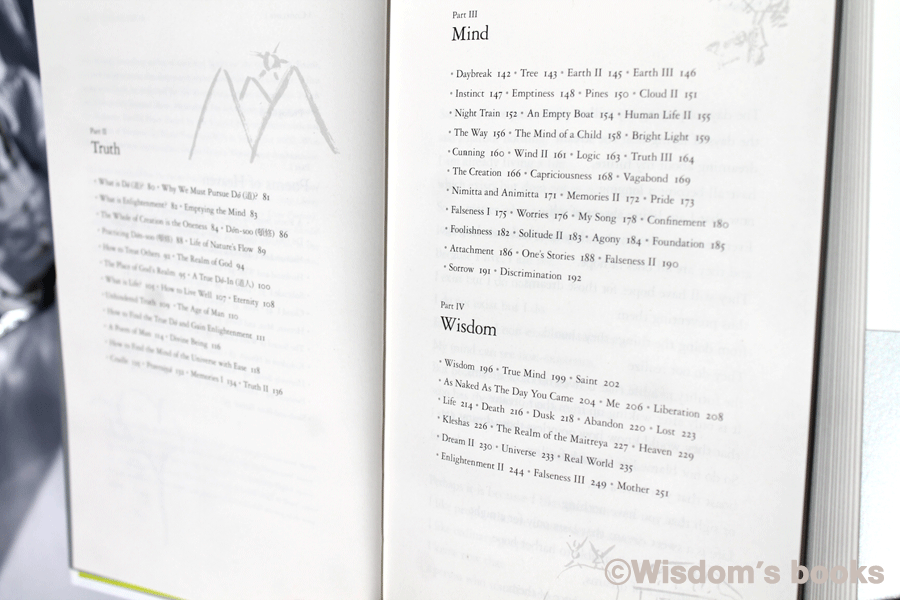 Part II
Truth
• What is Dé (道)? 80 • Why We Must Pursue Dé (道)? 81
• What is Enlightenment? 82 • Emptying the Mind 83
• The Whole of Creation is the Oneness 84 • Dón-soo (頓修) 86
• Practicing Dón-soo (頓修) 88 • Life of Nature's Flow 89
• How to Treat Others 92 • The Realm of God 94
• The Place of God's Realm 95 • A True Dé-In (道人) 100
• What is Life? 105 • How to Live Well 107 • Eternity 108
• Unhindered Truth 109 • The Age of Man 110
• How to Find the True Dé and Gain Enlightenment 111
• A Poem of Man 114 • Divine Being 116
• How to Find the Mind of the Universe with Ease 118
• Memories I 134 • Truth II 136
Part III
Mind
• Daybreak 142 • Tree 143 • Earth II 145 • Earth III 146
• Instinct 147 • Emptiness 148 • Pines 150 • Cloud II 151
• Night Train 152 • An Empty Boat 154 • Human Life II 155
• The Way 156 • The Mind of a Child 158 • Bright Light 159
• Cunning 160 • Wind II 161 • Logic 163 • Truth III 164
• The Creation 166 • Capriciousness 168 • Vagabond 169
• Nimitta and Animitra 171 • Memories II 172 • Pride 173
• Falseness I 175 • Worries 176 • My Song 178 • Confinement 180
• Foolishness 182 • Solitude II 183 • Agony 184 • Foundation 185
• Attachment 186 • One's Stories 188 • Falseness II 190
• Sorrow 191 • Discrimination 192
Part IV
Wisdom
• Wisdom 196 • True Mind 199 • Saint 202
• As Naked As The Day You Came 204 • Me 206 • Liberation 208
• Life 214 • Death 216 • Dusk 218 • Abandon 220 • Lost 223
• Kleshas 226 • The Realm of the Maitreya 227 • Heaven 229
• Dream II 230 • Universe 233 • Real World 235
• Enlightenment II 244 • Falseness III 249 • Mother 251
©Wisdom's books